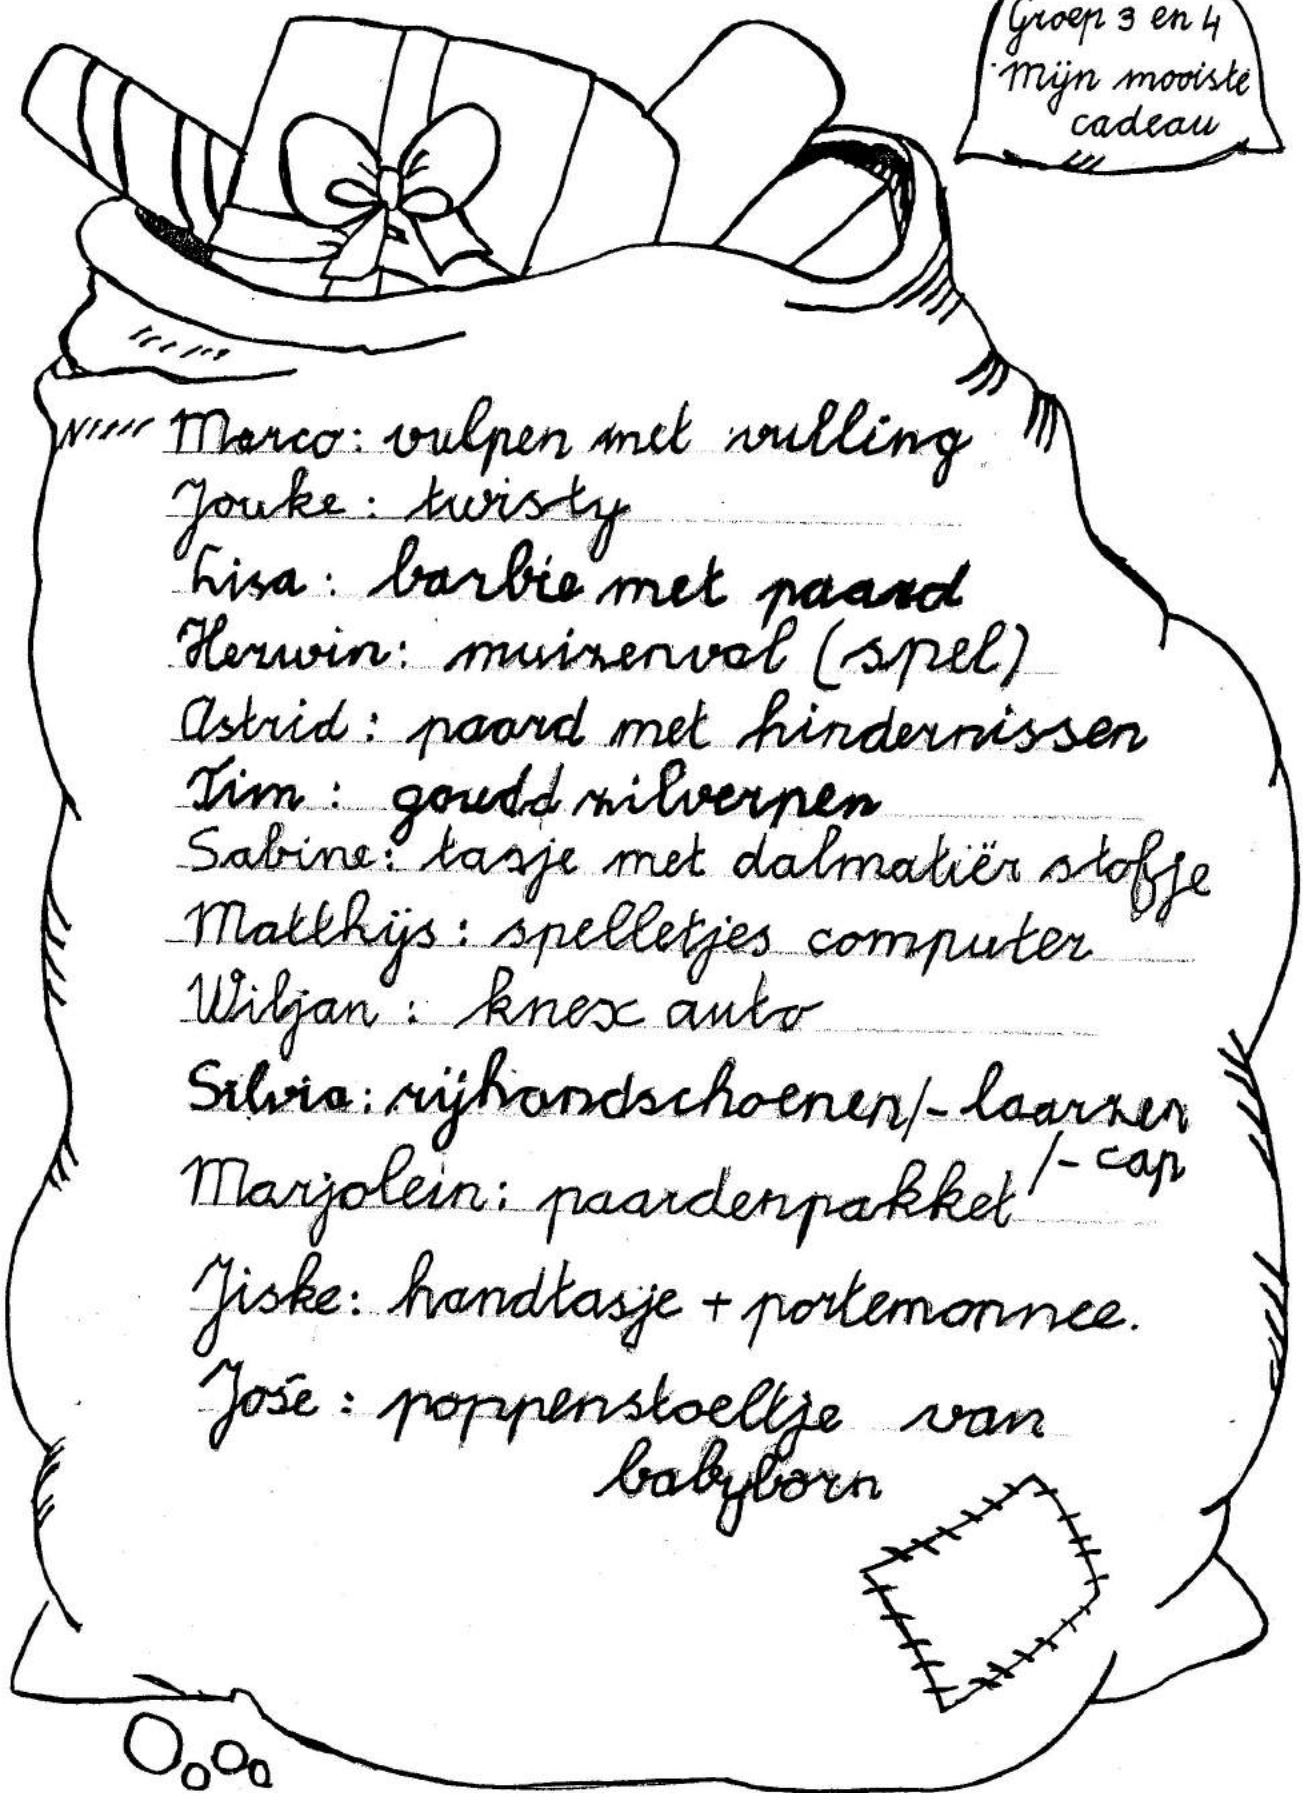 Groep 3 en 4
Mijn mooiste
cadeau
Marco: vulpen met vulling
Jouke: twisty
Lisa: barbie met paard
Herwin: muizenval (spel)
Astrid: paard met hindernissen
Tim: goudd zilverpen
Sabine: tasje met dalmatiër stofje
Matthijs: spelletjes computer
Wiljan: knex auto
Silvia: rijhandschoenen/-laarzen
/-cap
Marjolein: paardenpakket
Jiske: handtasje + portemonnee.
José: poppenstoeltje van
babyborn